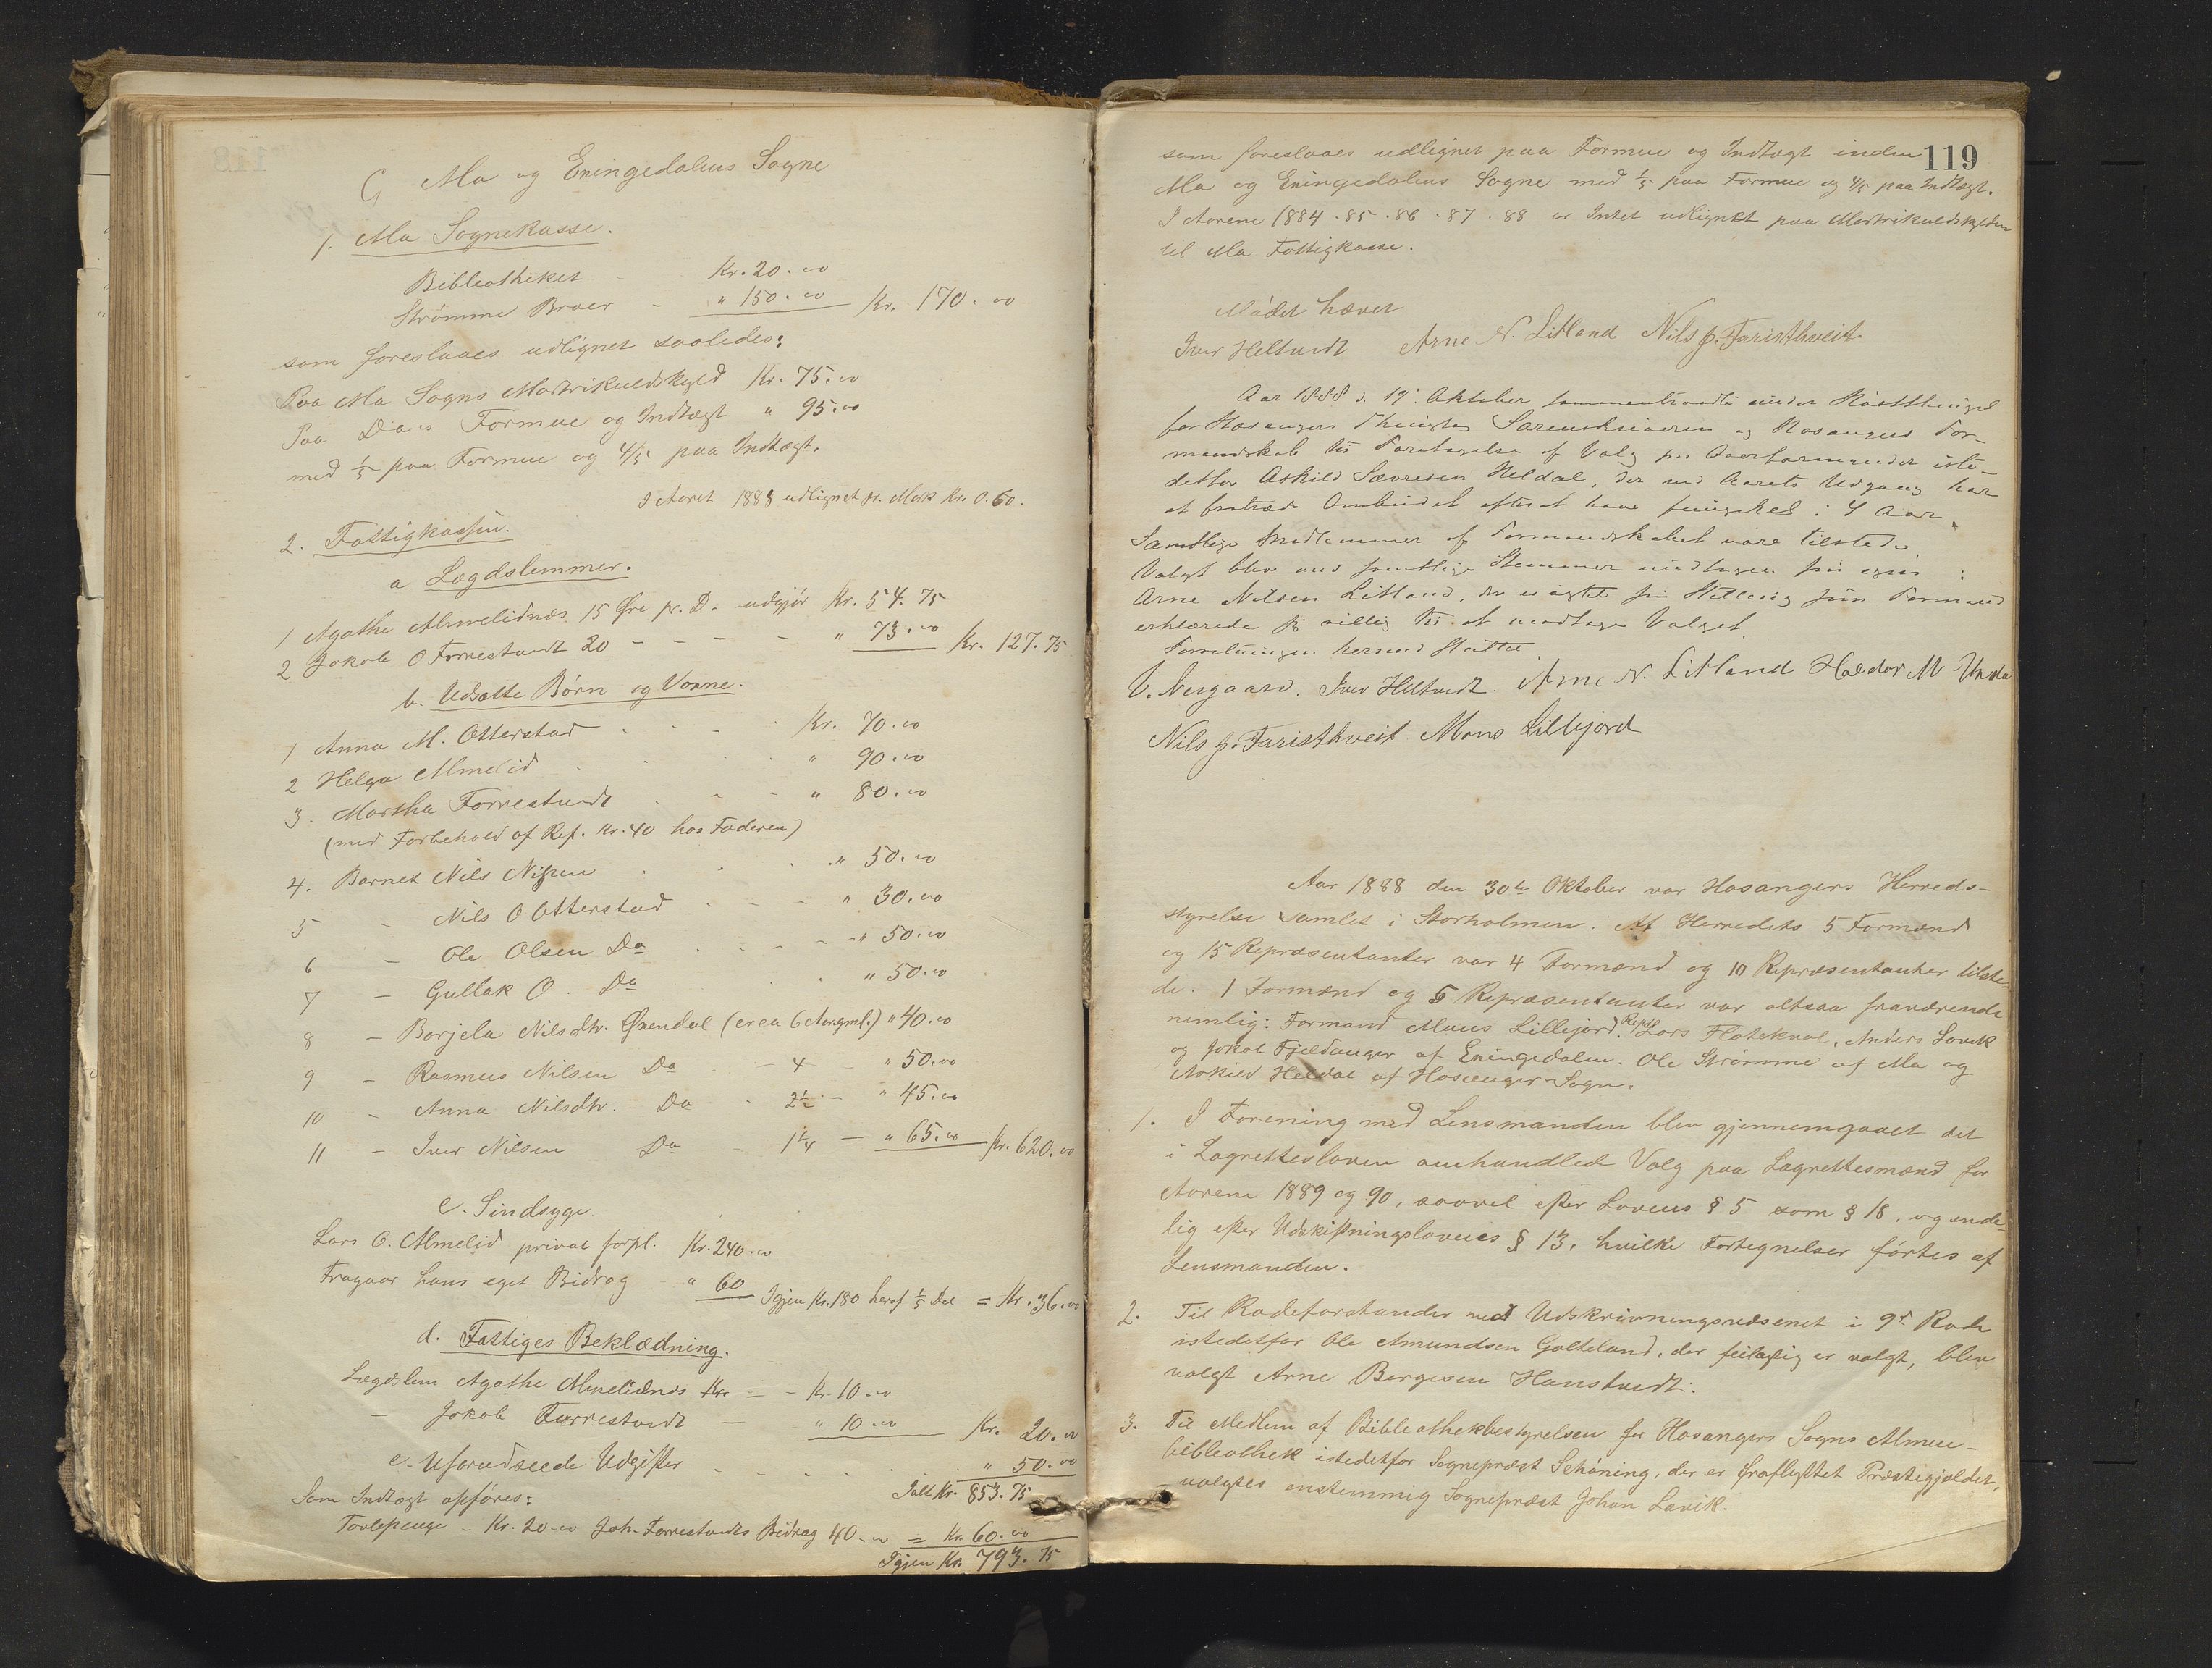 C, Mo og Eningedalens Sogne
1. Mo Sognekasse.
Bibliotheket - Kr. 20.00
Strømme Broer - " 150.00 Kr. 170.00
som foreslaaes udlignet saaledes:
Paa Mo Sogns Matrikuleskyld Kr. 75.00
Paa Do's Formue og Indtægt " 95.00
med 1/5 paa Formue og 4/5 paa Indtægt.
I Aaret 1888 udlignet pr. Mark Kr. 0.60.
2. Fattigkassen.
a Lægdslemmer.
1 Agathe Almelidnæs 15 Øre pr. D. udgjør Kr. 54.75
2 Jakob O Forrestvedt 20 - - - - " 73.00 Kr. 127.75
b. Udsatte Børn og Voxne.
1 Anna M. Otterstad - - - Kr. 70.00
2 Helga Almelid - - - " 90.00
3. Martha Forrestvedt - - - " 80.00
(med Forbehold af Ref. Kr. 40 hos Faderen)
4. Barnet Nils Nilsen - - - " 50.00
5 - Nils O Otterstad - - - " 30.00
6 - Ole Olsen Do - - - " 50.00
7 - Gullak O. Do - - " 50.00
8 - Borjela Nilsdtr. Øxendal (er ca 6 Aar gml.) " 40.00
9 - Rasmus Nilsen Do - 4 - " 50.00
10 - Anna Nilsdtr. Do - 2½ - " 45.00
11 - Iver Nilsen Do - 1¼ - " 65.00 Kr. 620.00
c. Sindsyge.
Lars O. Almelid privat forpl. Kr. 240.00
Fragaar hans eget Bidrag " 60 Igjen Kr. 180 heraf 1/5 Del = Kr. 36.00
d. Fattiges Beklædning.
Lægdslem Agathe Almelidnæs Kr - - Kr. 10.00
- Jakob Forrestvedt - " 10.00 Kr. 20.00
e. Uforudseede Udgifter - - - - " 50.00
Ialt Kr. 853.75
Som Indtægt opføres:
Tavlepenge - Kr. 20.00 Joh. Forrestvedts Bidrag 40.00 = Kr. 60.00
Igjen Kr. 793.75
119
som foreslaaes udlignet paa Formue og Indtægt inden
Mo og Eningedalens Sogne med 1/5 paa Formue og 4/5 paa Indtægt.
I Aarene 1884.85.86.87.88 er Intet udlignet paa Matrikuleskylden
til Mo Fattigkasse.
Mødet hævet
Iver Hiltvedt Arne N. Litland Nils J. Faristhveit.
Aar 1888 d. 19. Oktober sammentraadte under Høstthinget
for Hosangers Thinglag Sorenskriveren og Hosangers For-
mandskab til Foretagelse af Valg paa Overformynder iste-
detfor Askild Sævresen Heldal, der ved Aarets Udgang har
at fratræde Ombudet efter at have fungeret i 4 Aar.
Samtlige Medlemmer af Formandskabet vare tilstede.
Valgt blev med samtlige Stemmer undtagen sin egen :
Arne Nilsen Litland, der i sin Stilling som Formand
erklærede sig villig til at modtage Valget.
Forretningen hermed sluttet.
V. Nergaard. Iver Hiltvedt. Arne N. Litland Haldor M Unde
Nils J. Faristhveit Mons Lillejord
Aar 1888 den 30te Oktober var Hosangers Herreds-
styrelse samlet i Storholmen. Af Herredets 5 Formænd
og 15 Repræsentanter var 4 Formænd og 10 Repræsentanter tilste-
de. 1 Formænd og 5 Repræsentanter var altsaa fraværende
nemlig: Formand Mons Lillejord. Repr. Lars Flatekval, Anders Lavik
og Jakob Fjeldanger af Eningedalen. Ole Strømme af Mo og
Askild Heldal af Hosanger Sogn.
1. I Forening med Lensmanden blev gjennemgaaet det
i Lagrettesloven omhandlede Valg paa Lagrettesmænd for
Aarene 1889 og 90, saavel efter Lovens § 5 som § 18, og ende-
lig efter Udskiftningslovens § 13, hvilke Fortegnelser førtes af
Lensmanden.
2. Til Rodeforstander ved Udskrivningsvæsenet i 9de Rode
istedetfor Ole Amundsen Galteland, der feilagtig er valgt, blev
valgt Arne Bergesen Hanstvedt.
3. Til Medlem af Bibliothekbestyrelsen for Hosangers Sogns Almue-
bibliothek istedetfor Sognepræst Schøning, der er fraflyttet Præstegjældet,
valgtes enstemmig Sognepræst Johan Lavik.